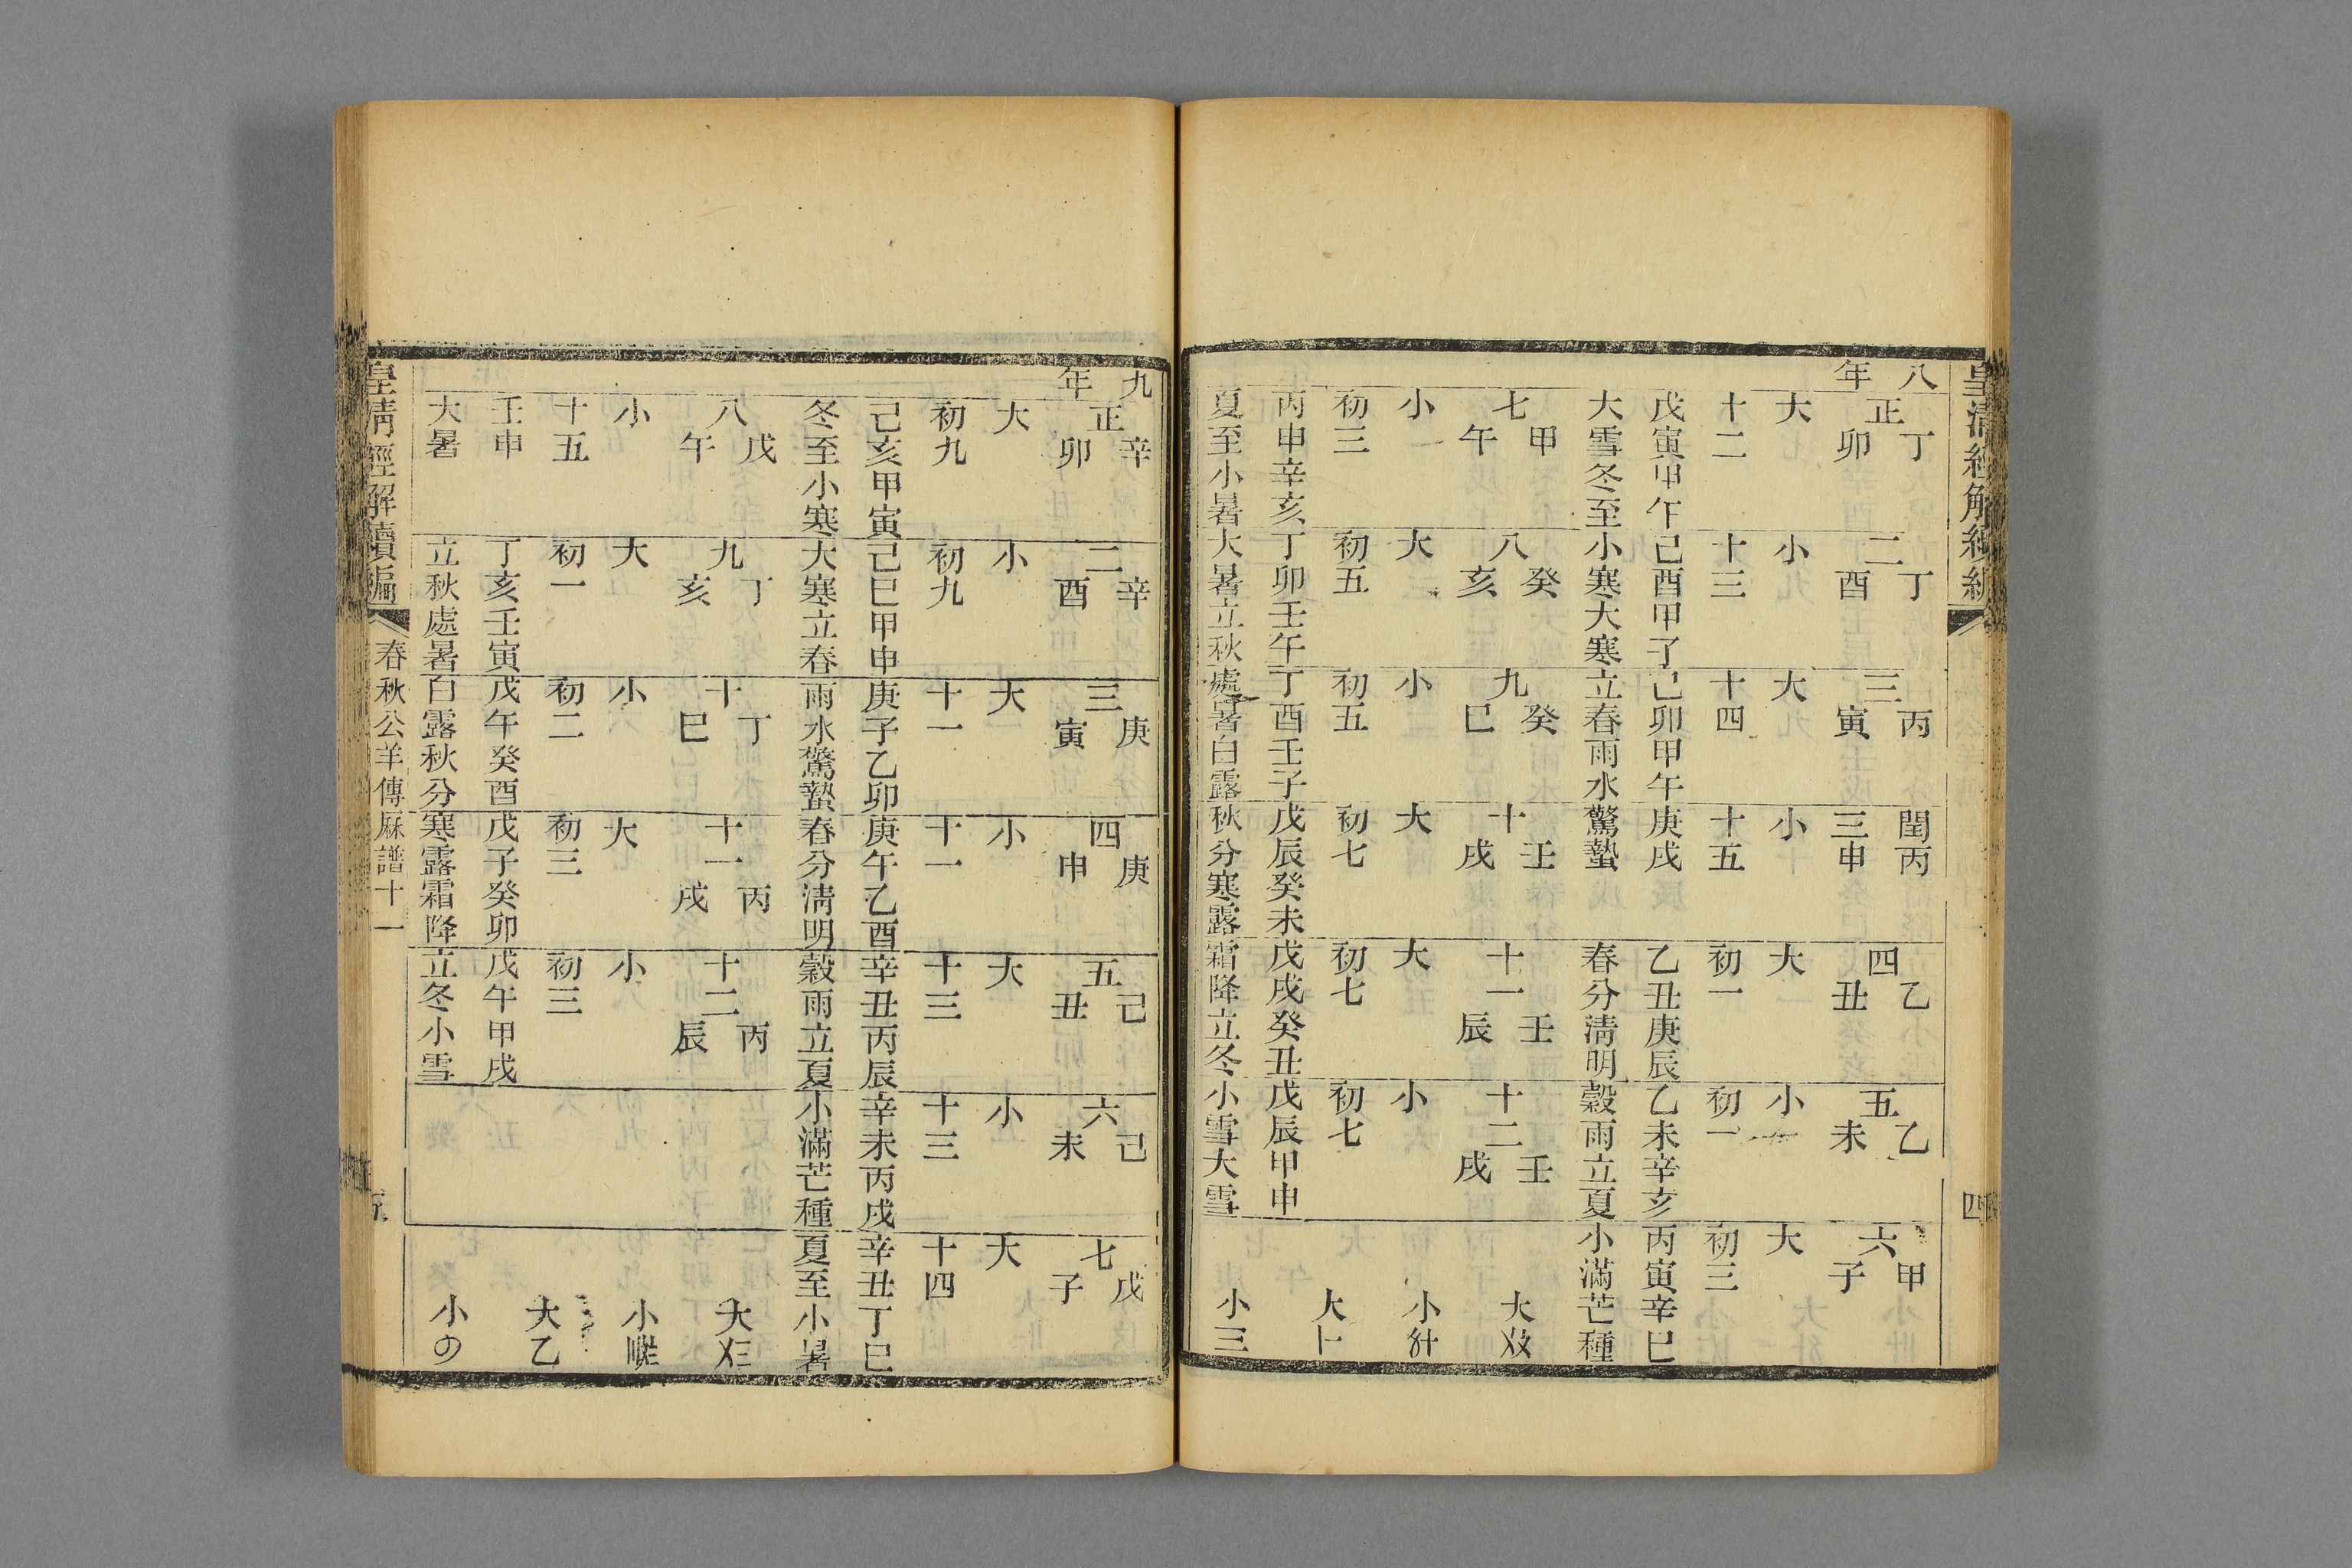 皇清經解續編
四
八年
正丁卯
大
十二
戊寅甲午
大雪冬至
二丁酉
小
十三
己酉甲子
小寒大寒
三丙寅
大
十四
己卯甲午
立春雨水
閏三丙申
小
十五
庚戌
驚蟄
四乙丑
大
初一
乙丑庚辰
春分清明
五乙未
小
初一
乙未辛亥
穀雨立夏
六甲子
大
初三
丙寅辛巳
小滿芒種
七甲午
小
初三
丙申辛亥
夏至小暑
八癸亥
大
初五
丁卯壬午
大暑立秋
九癸巳
小
初五
丁酉壬子
處暑白露
十壬戌
大
初七
戊辰癸未
秋分寒露
十一壬辰
大
初七
戊戌癸丑
霜降立冬
十二壬戌
小
初七
戊辰甲申
小雪大雪
大
小
大
小三
九年
正辛卯
大
初九
己亥甲寅
冬至小寒
二辛酉
小
初九
己巳甲申
大寒立春
三庚寅
大
十一
庚子乙卯
雨水驚蟄
四庚申
小
十一
庚午乙酉
春分清明
五己丑
大
十三
辛丑丙辰
穀雨立夏
六己未
小
十三
辛未丙戌
小滿芒種
七戊子
大
十四
辛丑丁巳
夏至小暑
八戊午
小
十五
壬申
大暑
九丁亥
大
初一
丁亥壬寅
立秋處暑
十丁巳
小
初二
戊午癸酉
白露秋分
十一丙戌
大
初三
戊子癸卯
寒露霜降
十二丙辰
小
初三
戊午甲戌
立冬小雪
大
小
大乙
小
皇清經解續編
春秋公羊傳厤譜十一
五